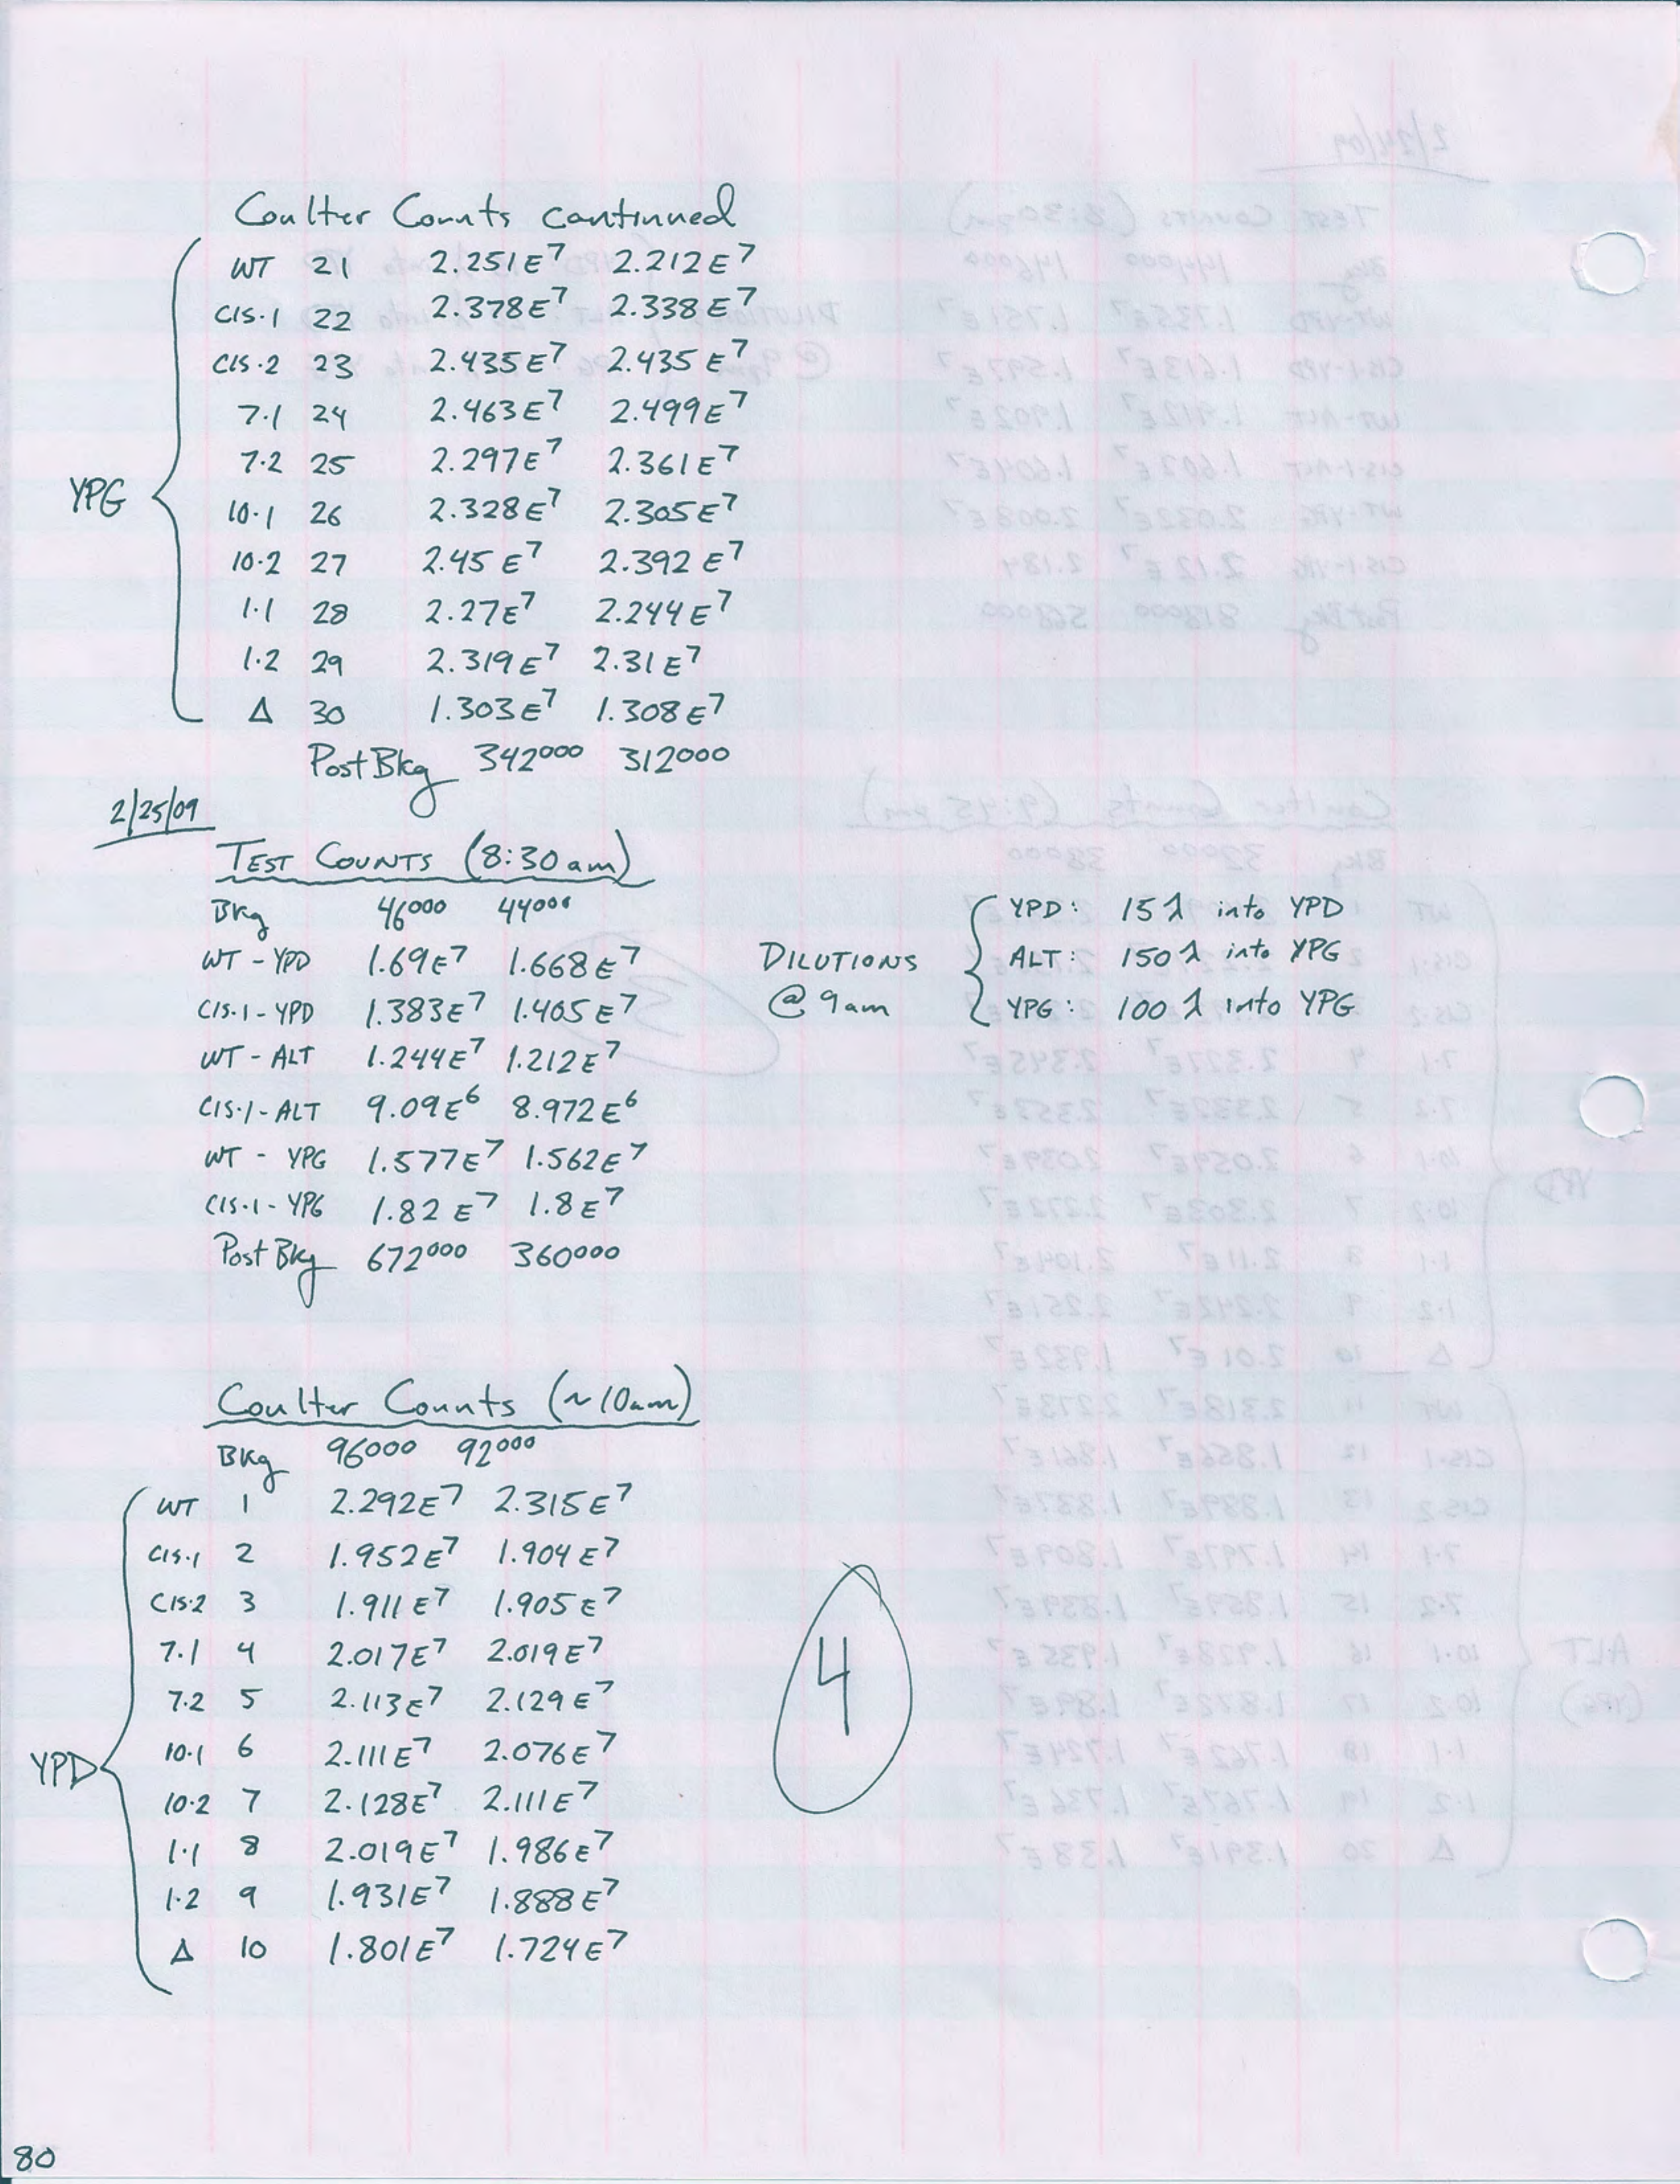 Coulter Counts continued
WT 21 2.251E7 2.212E7
CIS.1 22 2.378E7 2.338E7
CIS.2 23 2.435E7 2.435E7
7.1 24 2.463E7 2.499E7
7.2 25 2.297E7 2.361E7
YPG
10.1 26 2.328E7 2.305E7
10.2 27 2.45E7 2.392E7
1.1 28 2.27E7 2.244E7
1.2 29 2.319E7 2.31E7
Δ 30 1.303E7 1.308E7
Post Bkg 342000 312000
2/25/09
TEST COUNTS (8:30am)
Bkg 46000 44000
WT - YPD 1.69E7 1.668E7
CIS.1 - YPD 1.383E7 1.405E7
WT - ALT 1.244E7 1.212E7
CIS.1 - ALT 9.09E6 8.972E6
WT - YPG 1.577E7 1.562E7
CIS.1 - YPG 1.82E7 1.8E7
Post Bkg 672000 360000
DILUTIONS
@ 9am
YPD: 15λ into YPD
ALT: 150λ into YPG
YPG: 100λ into YPG
Coulter Counts (~10am)
Bkg 96000 92000
WT 1 2.292E7 2.315E7
CIS.1 2 1.952E7 1.904E7
CIS.2 3 1.911E7 1.905E7
7.1 4 2.017E7 2.019E7
7.2 5 2.113E7 2.129E7
10.1 6 2.111E7 2.076E7
YPD
10.2 7 2.128E7 2.111E7
1.1 8 2.019E7 1.986E7
1.2 9 1.931E7 1.888E7
Δ 10 1.801E7 1.724E7
4
80